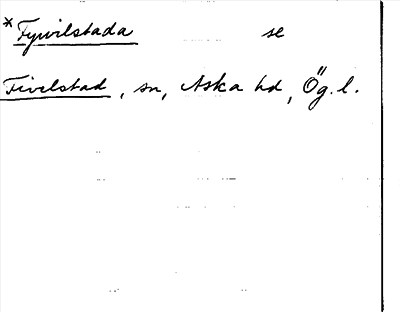 *Fyvilstada se
Fivelstad, sn, Aska hd, Ög. l.